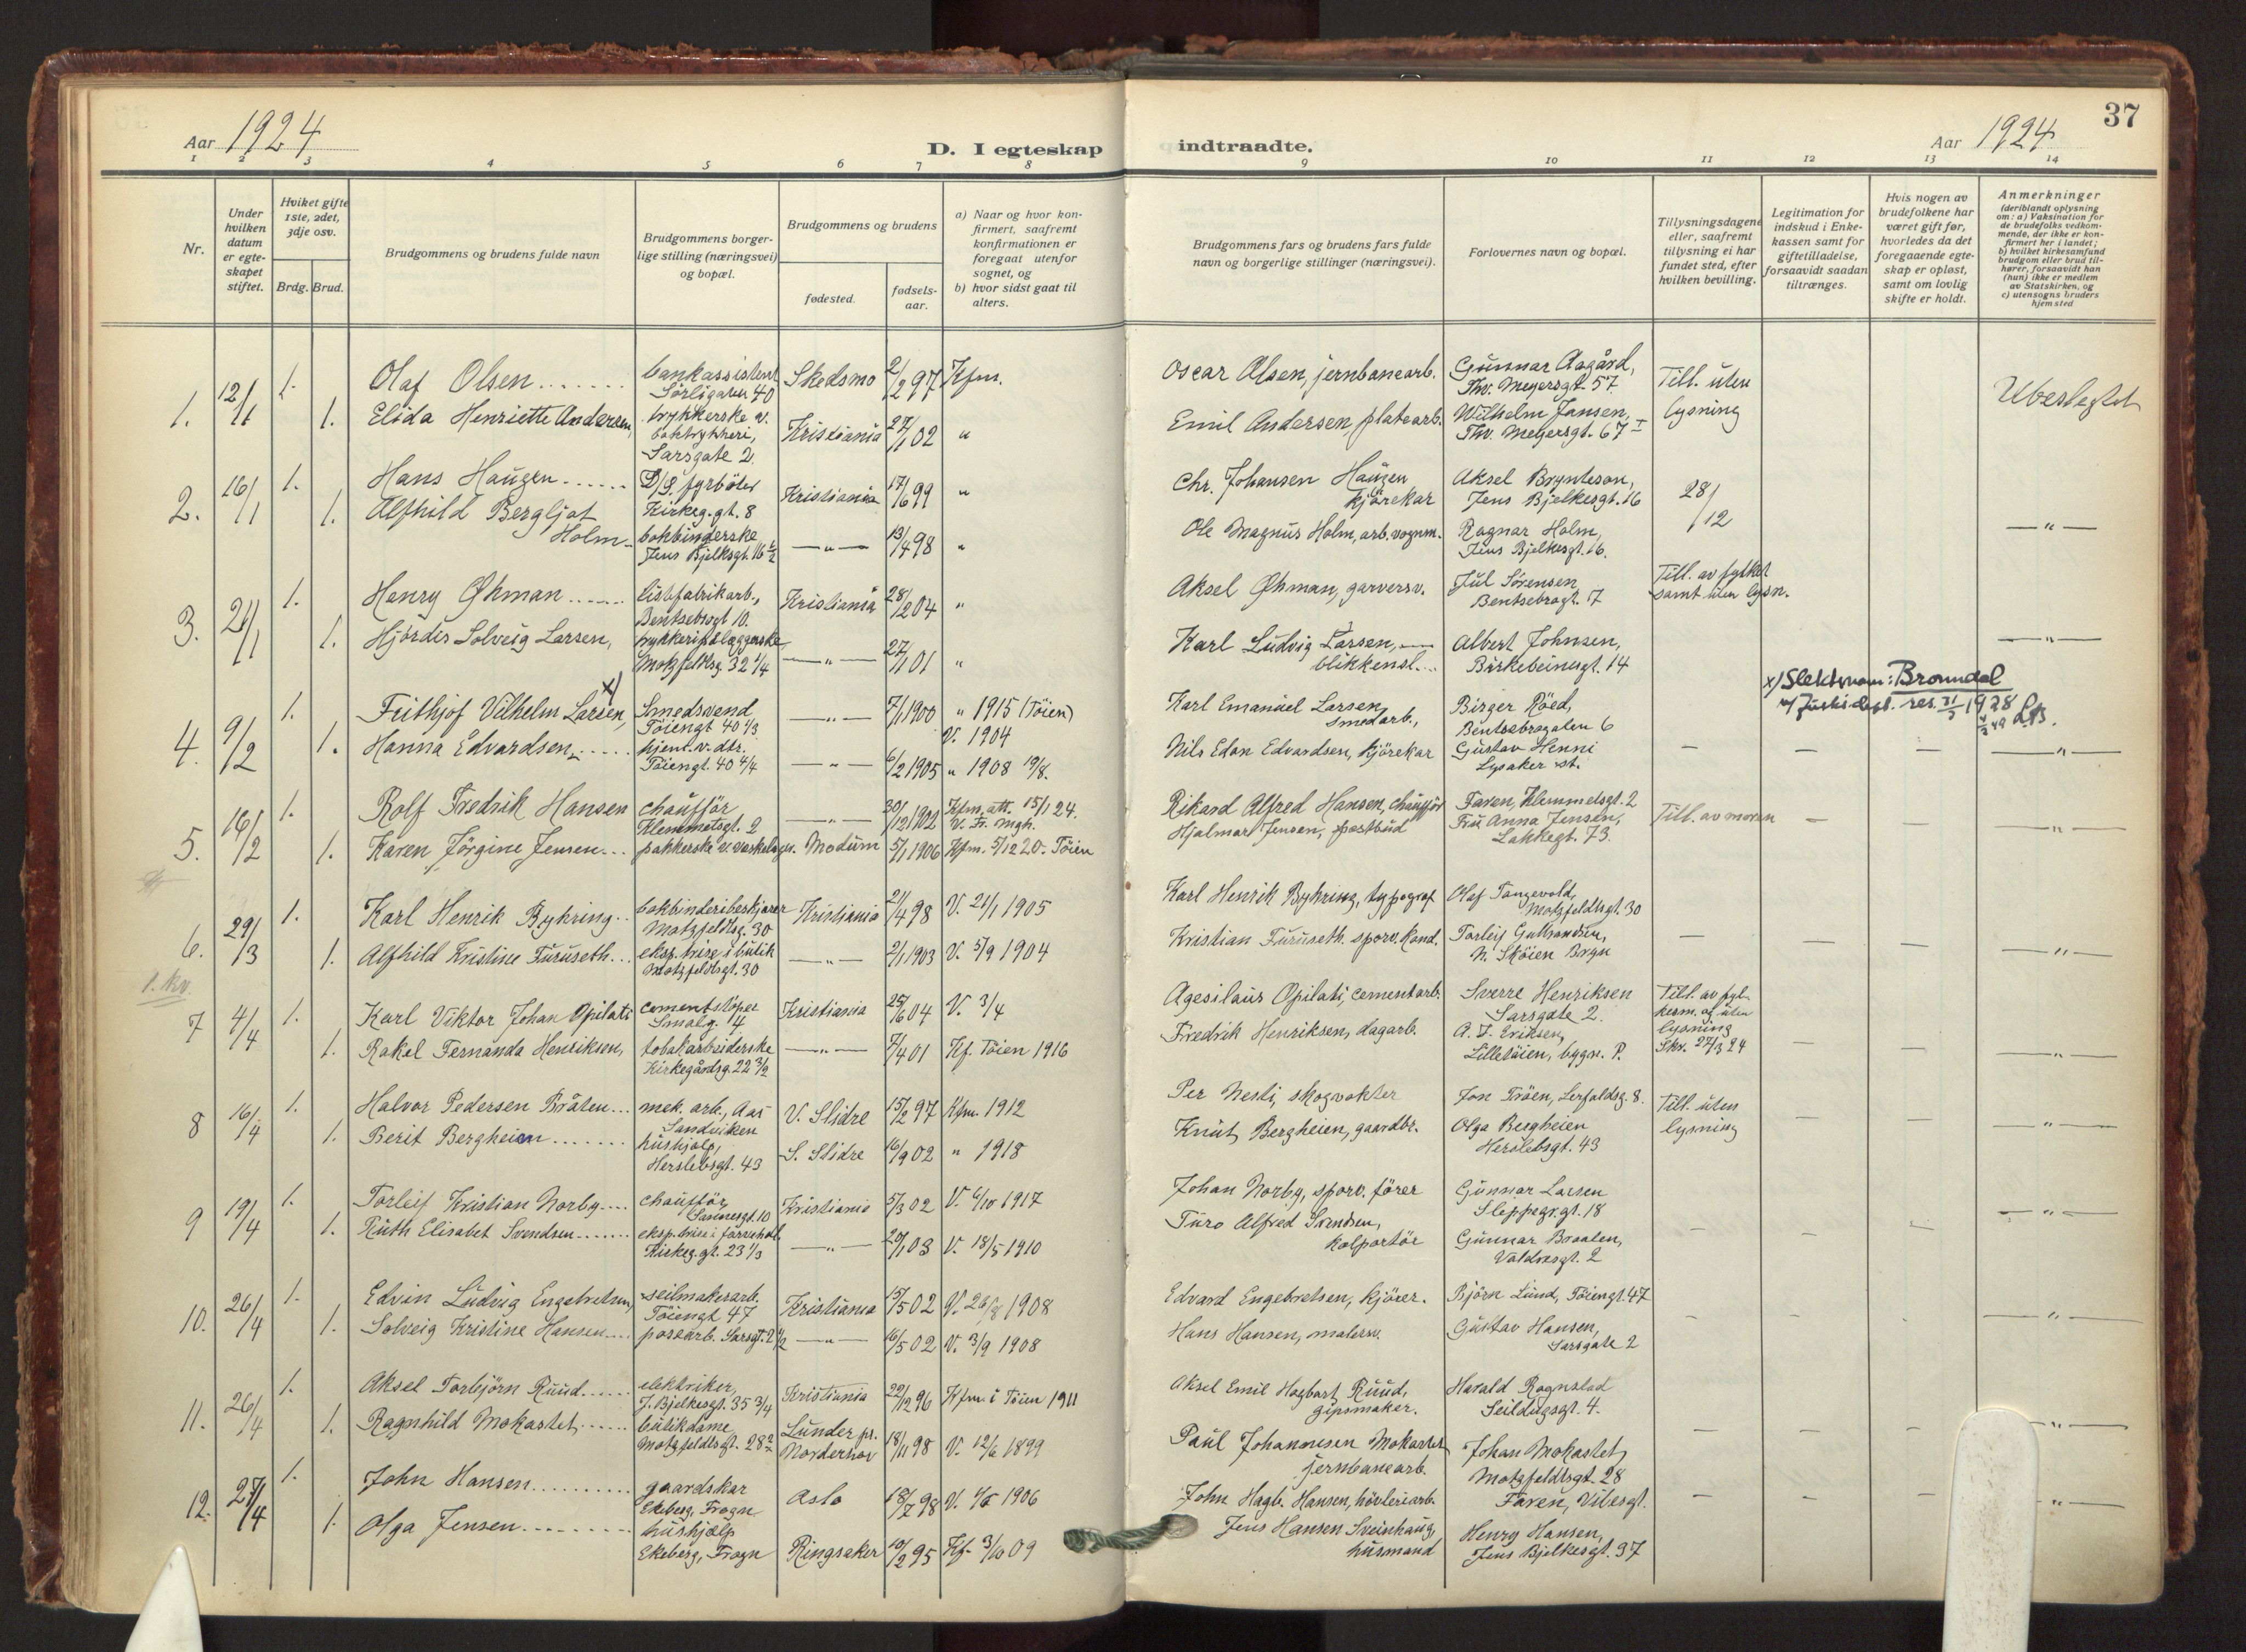 Aar 1924
D. I egteskap indtraadte.
37
Aar 1924
1 2 3 4 5 6 7 8 9 10 11 12 13 14
Nr.
Under hvilken datum er egteskapet stiftet.
Hviket gifte 1ste, 2det, 3dje osv.
Brdg. Brud.
Brudgommens og brudens fulde navn
Brudgommens borgerlige stilling (næringsvei) og bopæl.
Brudgommens og brudens
fødested.
fødselsaar.
a) Naar og hvor konfirmert, saafremt konfirmationen er foregaat utenfor sognet, og
b) hvor sidst gaat til alters.
Brudgommens fars og brudens fars fulde navn og borgerlige stillinger (næringsvei).
Forlovernes navn og bopæl.
Tillysningsdagene eller, saafremt tillysning ei har fundet sted, efter hvilken bevilling.
Legitimation for indskud i Enkekassen samt for giftetilladelse, forsaavidt saadan tiltrænges.
Hvis nogen av brudefolkene har været gift før, hvorledes da det foregaaende egteskap er opløst, samt om lovlig skifte er holdt.
Anmerkninger (deriblandt oplysning om: a) Vaksination for de brudefolks vedkommende, der ikke er konfirmert her i landet; b) hvilket kirkesamfund brudgom eller brud tilhører, forsaavidt han (hun) ikke er medlem av Statskirken, og c) utensogns bruders hjemsted
1. 12/1 1. Olaf Olsen bankassistent Sørligaten 40 Skedsmo 2/2 97 Kfm. Oscar Olsen, jernbanearb. Gunnar Aagård, Thv. Meyersgt. 57 Till. uten lysning Ubeslegtet
1. Elida Henriette Andersen, trykkerske v. boktrykkeri, Sarsgate 2. Kristiania 27/1 02 " Emil Andersen, platearb. Wilhelm Jansen, Thv. Meyersgt. 67 I
2. 16/1 1. Hans Haugen D/S. fyrböter Kirkeg.gt. 8 Kristiania 17/6 99 " Chr. Johansen Haugen kjörekar Aksel Brynteson, Jens Bjelkesgt. 16 28/12
1. Alfhild Bergljot Holm bokbinderske Jens Bjelksgt. 16 — " — 13/4 98 " Ole Magnus Holm, arb. vognm. Ragnar Holm, Jens Bjelkesgt. 16. — " —
3. 21/1 1. Henry Öhman listefabrikarb., Bentsebrogt 10. Kristiania 28/12 04 " Aksel Öhman, garversv. Jul Sörensen Bentsebrogt. 7 Till. av fylket samt uten lysn.
1. Hjördis Solveig Larsen, Motzfeldtsg. 32 1/4 — " — 27/1 01 " Karl Ludvig Larsen, blikkensl. Albert Johnsen, Birkebeinergt. 14 — " —
x) Slektsnavn: Bromdal
4. 9/2 1. Frithjof Vilhelm Larsen, x) Smedsvend Töiengt 40 1/3 — " — 7/1 1900 " 1915 (Töien) V. 1904 Karl Emanuel Larsen smedarb., Birger Röed, Bentsebrogaten 6
1. Hanna Edvardsen hjem. v. dtr. Töiengt. 40 4/4 — " — 6/2 1905 " 1908 19/8. Nils Edon Edvardsen, kjörekar Gustav Henni Lysaker st. — — — — " —
5. 16/2 1. Rolf Fredrik Hansen chaufför Klemmetsgt. 2 — " — 30/12 1902 Kfm. att. 15/1 24. Rikard Alfred Hansen, chauffør Faren, Klemmetsgt. 2
1. Karen Jörgine Jensen pakkerske v. Modum 5/1 1906 Kfm. 5/12 20. Töien Hjalmar Jensen, postbud Fru Anna Jensen, Lakkegt. 73. Till. av moren — — — " —
6. 29/3 1. Karl Henrik Byhring bokbinderibeskjærer Motzfeldtsg. 30 Kristiania 2/4 98 V. 21/1 1905 Karl Henrik Byhring, typograf Olaf Tangevold, Motzfeldtsgt. 30
1. Alfhild Kristine Furuseth eksp.trise i butik Motzfeldtsgt. 30 — " — 2/1 1903 V. 5/9 1904 Kristian Furuseth. sporv. kond. Torleif Gulbrandsen, N. Sköien Bryn — — — — " —
1. kv.
7 4/4 1. Karl Viktor Johan Opilati cementstöper Smalg. 14 Kristiania 25/6 04 V. 3/4 Agesilaus Opilati, cementarb. Sverre Henriksen Sarsgate 2. Till. av fylkesm. og uten lysning Skr. 27/3 24
1. Rakel Fernanda Henriksen, tobakarbeiderske Kirkegårdsg. 22 3/2 — " — 7/4 01 Kf. Töien 1916 Fredrik Henriksen, dagarb. A. J. Eriksen, Lilletöien, bygn. P. — — — " —
8 16/4 1. Halvor Pedersen Bråten mek. arb., Aas Sandviken V. Slidre 15/2 97 Kfm. 1912 Per Nesti, skogvokter Jon Tröen, Lerfaldsg. 8. Till. uten lysning
1. Berit Bergheien hushjælp, Herslebsgt. 43 S. Slidre 16/9 02 " 1918 Knut Bergheien, gaardbr. Olga Bergheien Herslebsgt. 43 — — — " —
9 19/4 1. Torleif Kristian Norby chauffør Sannesgt. 10 Kristiania 5/3 02 V. 6/10 1917 Johan Norby, sporv. förer Gunnar Larsen Sleppegr.gt. 18
1. Ruth Elisabet Svendsen eksp.trise i Kirkeg.gt. 23 1/3 — " — 27/1 03 V. 18/5 1910 Turo Alfred Svendsen, kolportör Gunnar Braaten, Valdresgt. 2 — — — — " —
10. 26/4 1. Edvin Ludvig Engebretsen, seilmakerarb. Töiengt 47 Kristiania 15/5 02 V. 26/8 1908 Edvard Engebretsen, kjörer. Björn Lund, Töiengt. 47
1. Solveig Kristine Hansen posearb. Sarsgt. 2 1/2 — " — 16/5 02 V. 3/9 1908 Hans Hansen, malersv. Gustav Hansen, Sarsgate 2 — — — — " —
11. 26/4 1. Aksel Torbjörn Ruud elektriker, J. Bjelkesgt. 35 3/4 Kristiania 22/12 96 Kfm. i Töien 1911 Aksel Emil Hagbart Ruud, gipsmaker. Harald Rognstad Seildugsgt. 4.
1. Ragnhild Mokastet butikdame Motzfeldtsgt. 28 Lunder pr. Norderhov 18/11 98 V. 12/6 1899 Paul Johannesen Mokastet jernbanearb. Johan Mokastet, Motzfeldtsgt. 28 — — — — " —
12. 27/4 1. John Hansen gaardskar Ekeberg, Frogn Oslo 18/7 98 V. 1906 John Hagb. Hansen, hövleriarb. Faren, Vibesgt.
1. Olga Jensen hushjælp Ekeberg, Frogn Ringsaker 10/2 95 Kf. 3/10 09 Jens Hansen Sveinhaug, husmand Henry Hansen, Jens Bjelkesgt. 37 — — — "